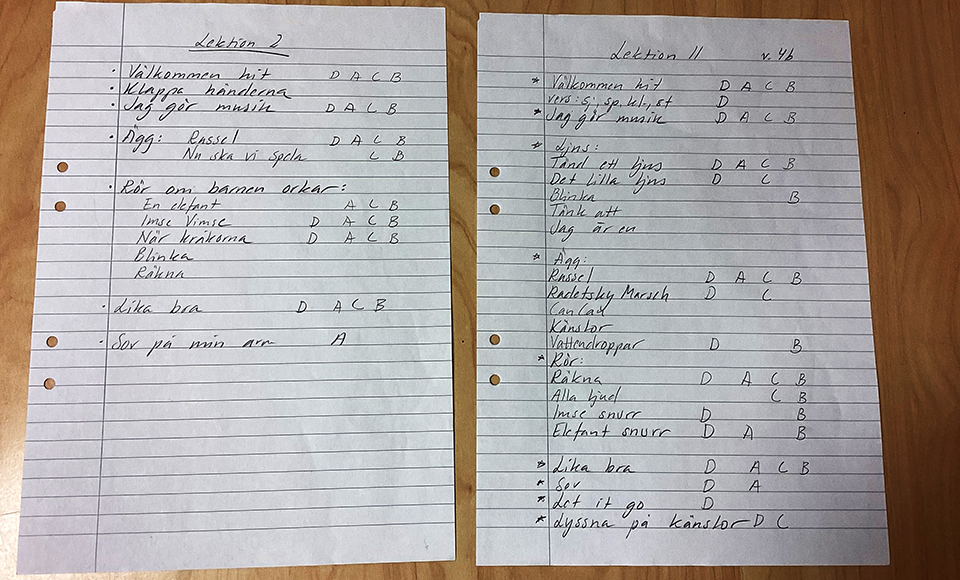 Lektion 2
· Välkommen hit D A C B
· Klappa händerna
· Jag gör musik D A C B
· Ägg: Rassel D A C B
Nu ska vi spela C B
· Rör om barnen orkar:
En elefant A C B
Imse Vimse D A C B
När kråkorna D A C B
Blinka
Räkna
· Lika bra D A C B
· Sov på min arm A
Lektion 11 v. 46
* Välkommen hit D A C B
vers: sj, sp, kl, st D
* Jag gör musik D A C B
* Ljus:
Tänd ett ljus D A C B
Det lilla ljus D C
Blinka B
Tänk att
Jag är en
* Ägg:
Rassel D A C B
Radetsky Marsch D C
CanCan
Känslor
Vattendroppar D B
* Rör:
Räkna D A C B
Alla ljud C B
Imse snurr D B
Elefant snurr D A B
* Lika bra D A C B
* Sov D A
* Let it go D
* Lyssna på känslor D C